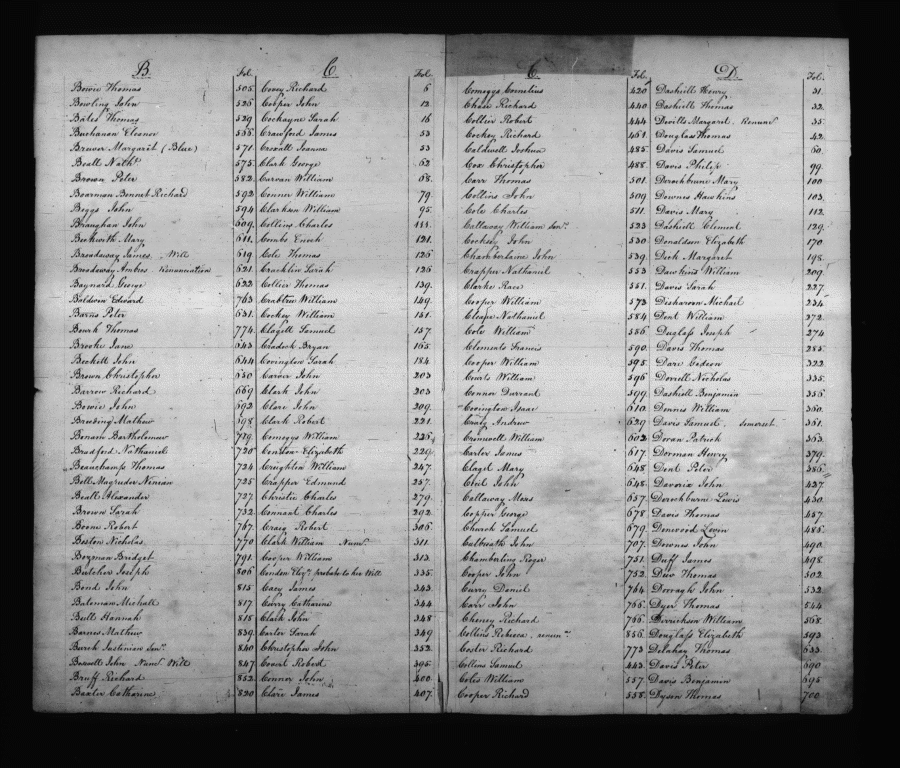 B. Fol.
Bowie Thomas 505.
Bowling John 526
Bates Thomas 529
Buchanan Eleanor 535.
Brewer Margaret (Blue) 571.
Beall Nath.l 575.
Brown Peter 582.
Boarman Bennet Richard 592
Beggs John 594
Bhraughan John 609.
Beckwith Mary 611.
Broadaway James, Will 619
Broadaway Ambros. Renunciation 621.
Baynard George 622
Baldwin Edward 763
Burus Peter 631.
Burch Thomas 774.
Brooke Jane 643
Beckett John 644
Brown Christopher 650
Barrow Richard 669
Bowie John 692
Bruding Mathew 698
Benam Bartholemew 719.
Bradford Nathaniel 720
Beauchamp Thomas 724
Bell Magruder Ninian 725
Beall Alexander 727
Brown Sarah 732.
Boone Robert 767.
Boston Nicholas 770
Bozman Bridget 791.
Butcher Joseph 806
Bond John 815
Bateman Michall 817
Bull Hannah 818
Barnes Mathew 839.
Burch Justinian Sen.r 840
Boswell John Num.e Will 847
Bruff Richard 852.
Baxter Catharine 820
C. Fol.
Covey Richard 6
Cooper John 12
Cockayne Sarah 16
Crawford James 53
Coxall Joanna 53
Clark George 62
Carvan William 68.
Cunn William 79.
Clarkson William 95.
Collins Charles 111.
Combs Enoch 121.
Cole Thomas 126
Cracklin Sarah 126
Collier Thomas 139.
Crabtree William 149.
Cockey William 151.
Clagett Samuel 157.
Cradock Bryan 165.
Covington Sarah 184
Carver John 203
Clark John 203
Clare John 209.
Clark Robert 221.
Comegys William 226
Contson Elizabeth 229
Creighton William 247.
Crapper Edmund 257.
Christie Charles 279.
Connant Charles 292.
Craig Robert 306.
Clark William Num.e 311.
Cooper William 313.
Condon Eliz.a probate to her Will 335.
Cacy James 343.
Curry Catharine 344
Clark John 348
Carter Sarah 349
Christopher John 352.
Covert Robert 395.
Connor John 400.
Clare James 407.
C. Fol.
Comegys Cornelius 420
Chase Richard 440
Collier Robert 444
Cockey Richard 461.
Caldwell Joshua 485.
Cox Christopher 488.
Carr Thomas 501.
Collins John 509.
Cole Charles 511.
Callaway William Sen.r 523
Cocksey John 530
Chamberlaine John 539.
Crapper Nathaniel 553
Clarke Race 561.
Cooper William 573
Cleape Nathaniel 584
Cole William 586
Clements Francis 590.
Cooper William 595.
Courts William 596
Connor Durrant 599.
Covington Isaac 610.
Craig Andrew 629
Cromwell William 602
Carter James 617.
Claget Mary 648
Cecil John 648.
Callaway Moses 657.
Copper George 678
Church Samuel 679.
Culbreath John 707.
Chamberling Roger 751.
Cooper John 752.
Curry Daniel 764
Carr John 766.
Cheney Richard 766.
Collins Rebeca, renun.n 856.
Coster Richard 773
Collins Samuel 443
Coles William 557.
Cooper Richard 558.
D. Fol.
Dashiell Henry 31.
Dashiell Thomas 32.
Deville Margaret. Renun.n 35.
Douglass Thomas 42.
Davis Samuel 60.
Davis Philip 99.
Derochbrune Mary 100
Downes Hawkins 103.
Davis Mary 112.
Dashiell Clement 129.
Donaldson Elizabeth 170
Dick Margaret 198.
Dawkins William 209.
Davis Sarah 227.
Disharoon Michael 234
Dent William 272.
Duglass Joseph 274
Davis Thomas 285.
Dare Gideon 322
Dorrell Nicholas 335.
Dashiell Benjamin 356
Dennis William 360.
Davis Samuel. Somerset. 361.
Doran Patrick 363.
Dorman Henry 379.
Dent Peter 386.
Davorix John 427.
Derochburn Lewis 430.
Davis Thomas 457.
Denwood Levin 485.
Downes John 490.
Duff James 498.
Due Thomas 502
Dorragh John 532.
Dyer Thomas 544
Derrickson William 568.
Douglass Elizabeth 593
Delahay Thomas 633.
Davis Peter 690
Davis Benjamin 695
Dyson Thomas 700